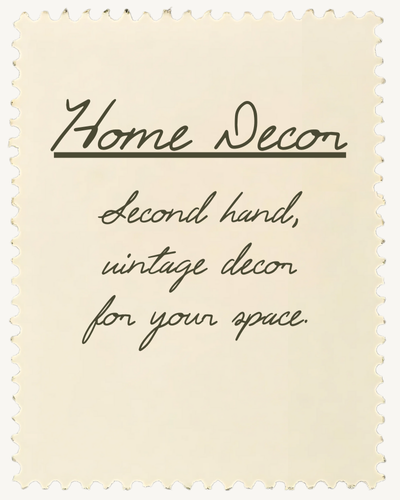 Home Decor
Second hand,
vintage decor
for your space.